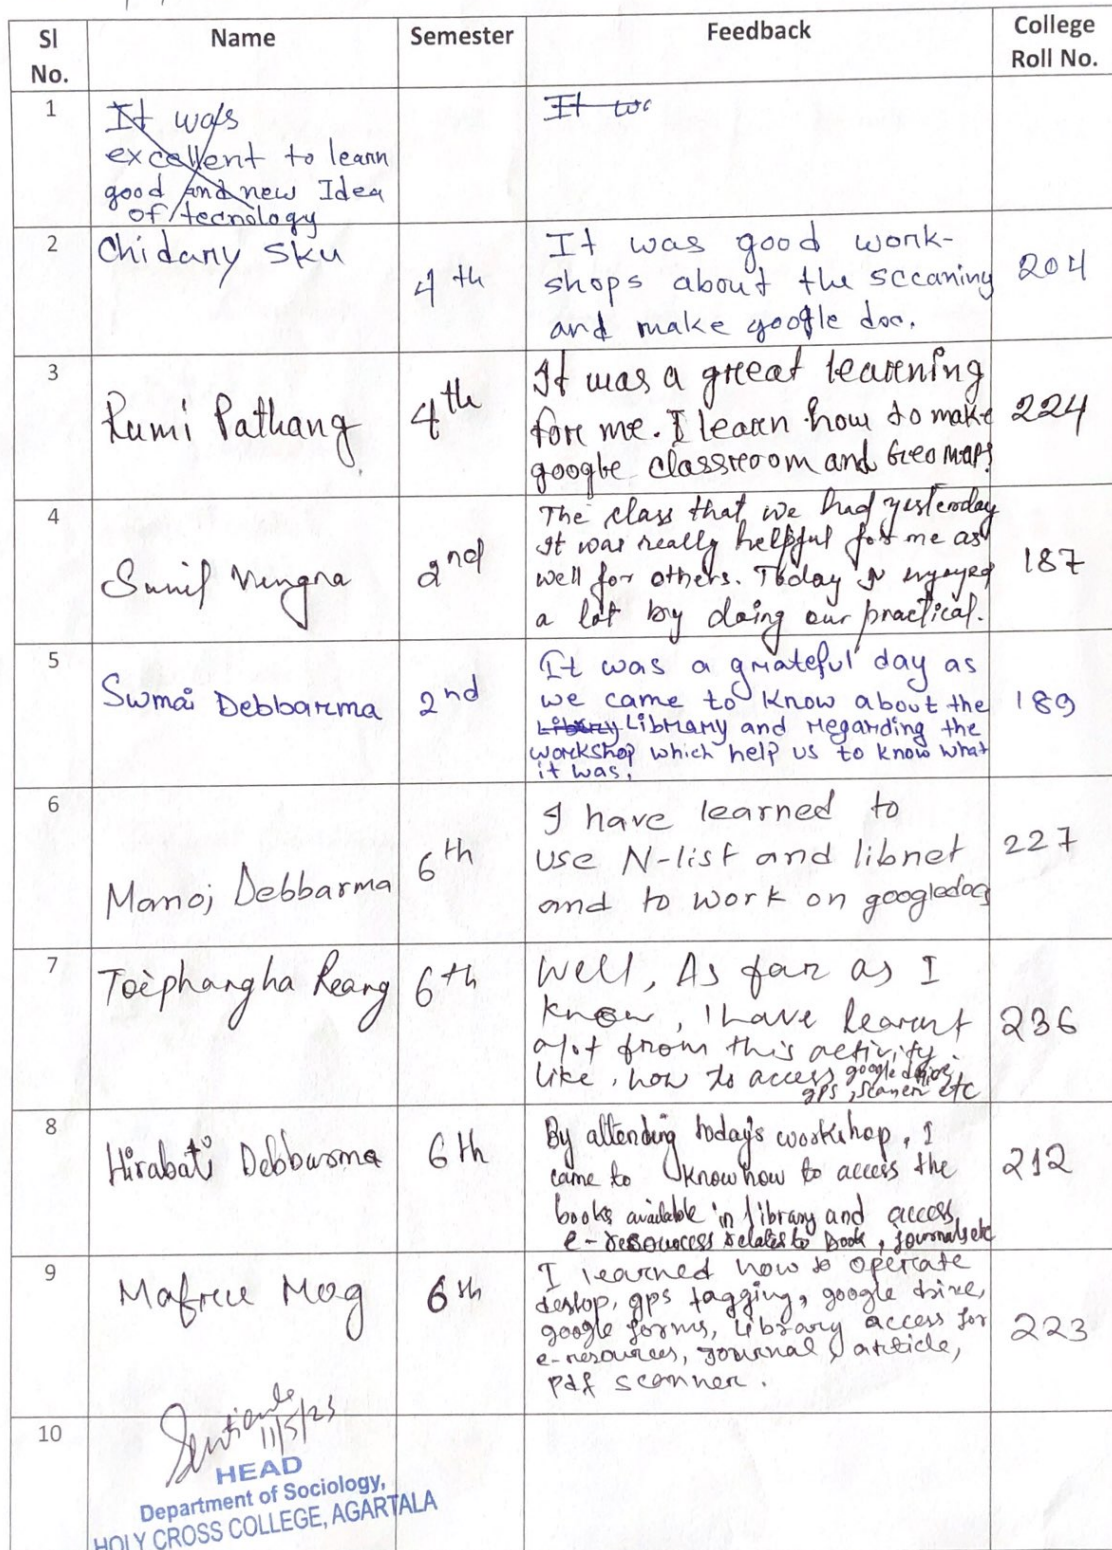 Sl No. Name Semester Feedback College Roll No.
1 It was It
excellent to learn
good and new Idea
of tecnology
2 Chidany Sku 4th It was good work-
shops about the sccaning 204
and make google doc.
3 Rumi Pathang 4th It was a great learning
for me. I learn how to make 224
google classroom and Geo maps
4 Sunil 2nd The class that we had yesterday
It was really helpful for me as 187
well for others. Today I enjoyed
a lot by doing our practical.
5 Swmai Debbarma 2nd It was a grateful day as
we came to know about the 189
Library Library and regarding the
workshop which help us to know what
it was.
6 Manoj Debbarma 6th I have learned to
use N-list and libnet 227
and to work on googledocs
7 Toiphangha Reang 6th Well, As far as I
know, I have learnt 236
alot from this activity
like, how to access google drive,
gps, scaner etc
8 Hirabati Debbarma 6th By attending today's workshop, I
came to know how to access the 212
books available in library and access
e-resourcess relates to book, journals etc
9 Mafrue Mog 6th I learned how to operate
destop, gps tagging, google drive,
google forms, library access for 223
e-resources, journal, article,
pdf scanner.
10
11/5/23
HEAD
Department of Sociology,
HOLY CROSS COLLEGE, AGARTALA